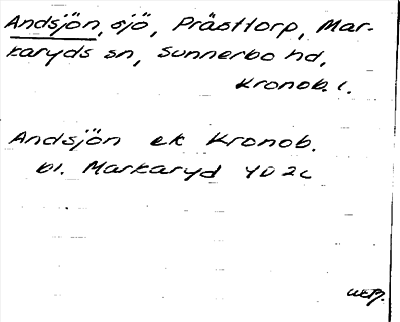 Andsjön, sjö, Prästtorp, Mar-
karyds sn, Sunnerbo hd,
Kronob. l.
Andsjön ek Kronob.
bl. Markaryd 4D2c